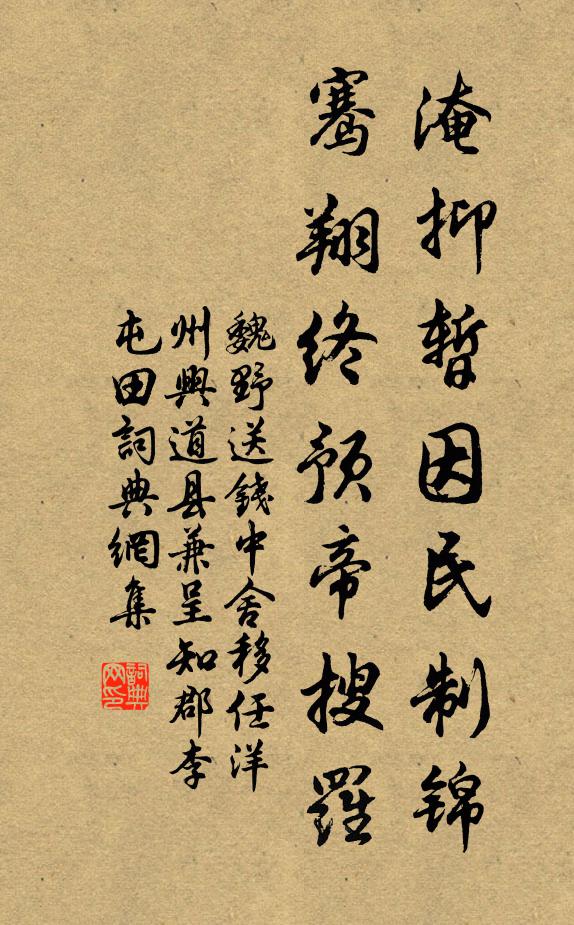 淹抑暫因民制锦
騫翔终预帝搜羅
魏野送錢中舍移任洋
州興道县兼呈知郡李
屯田詞典網集
詞典
网印